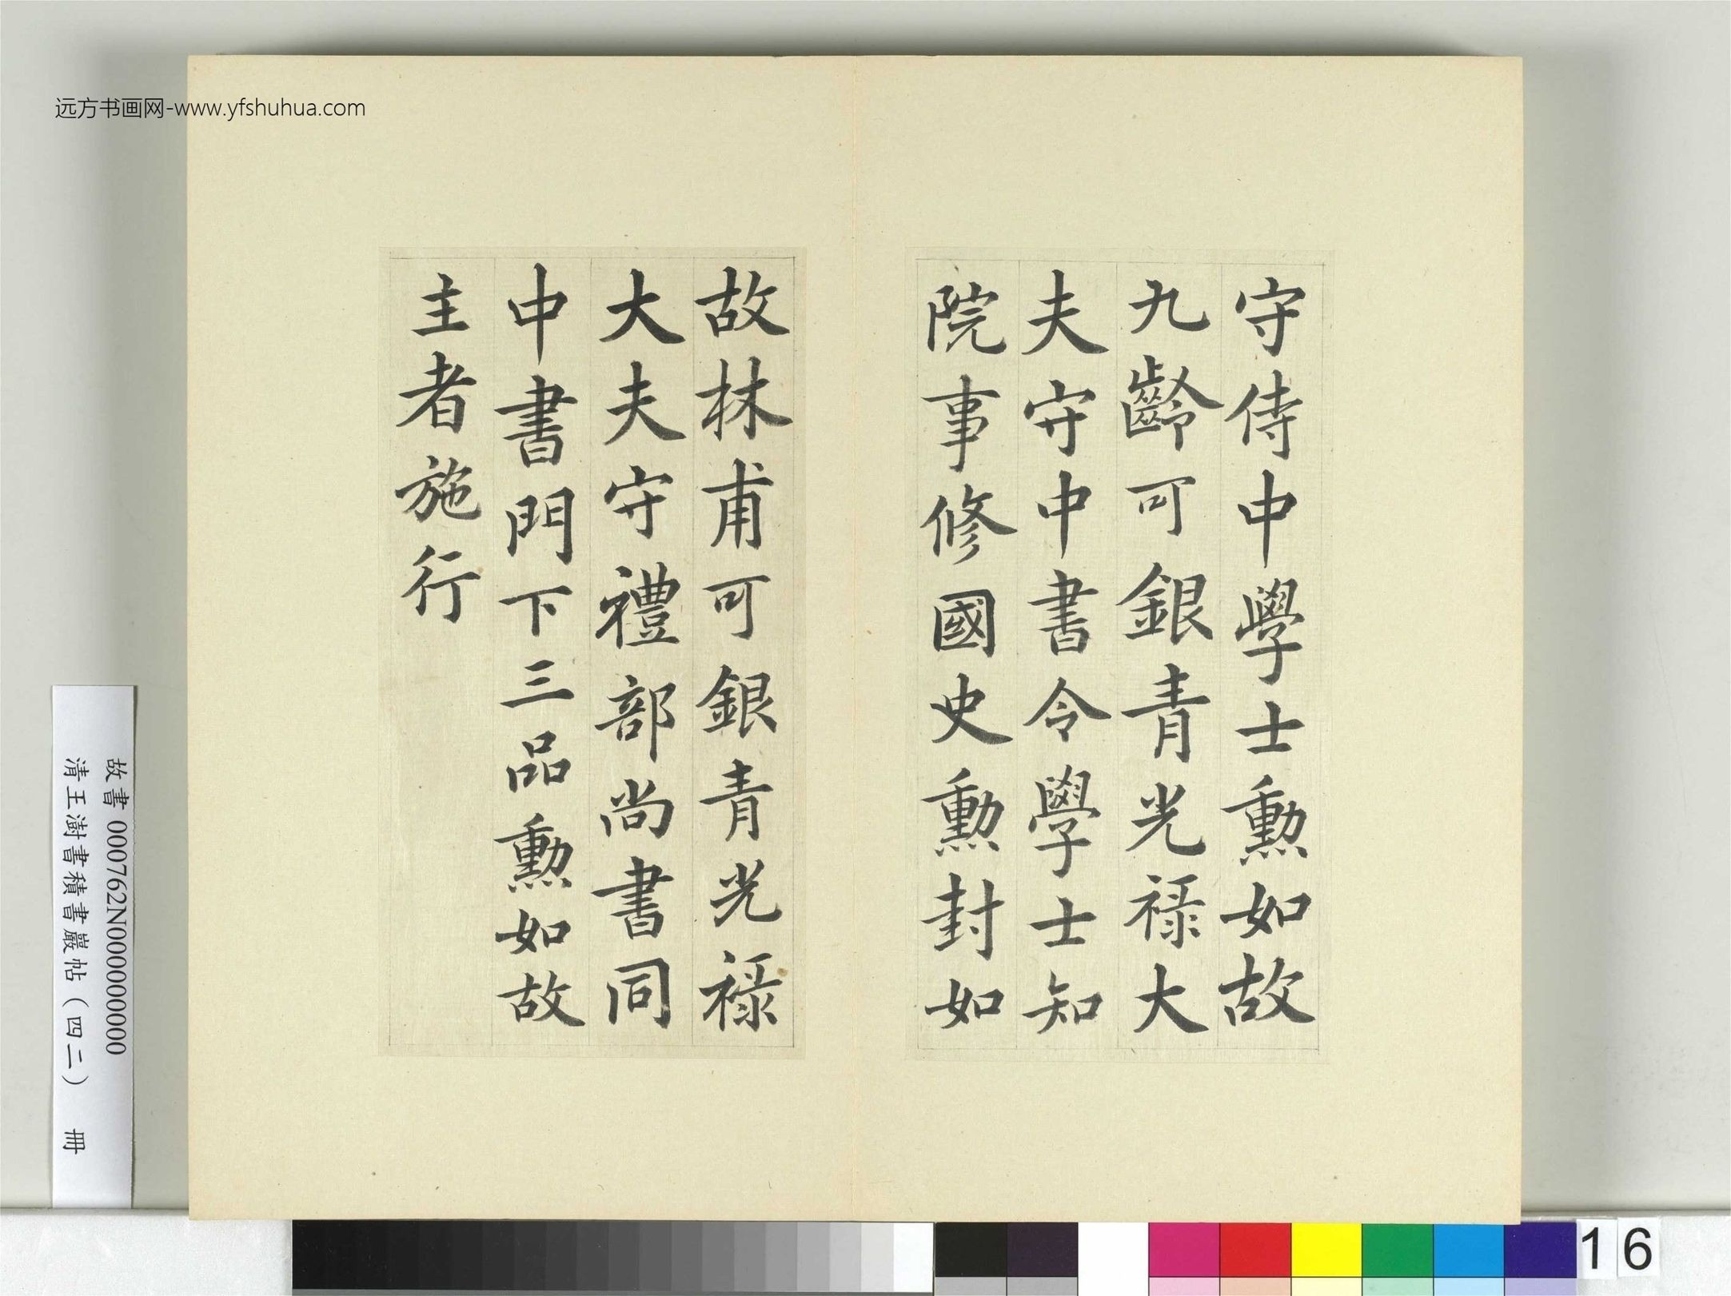 远方书画网-www.yfshuhua.com
守侍中學士勲如故
九齡可銀青光祿大
夫守中書令學士知
院事修國史勲封如
故林甫可銀青光祿
大夫守禮部尚書同
中書門下三品勲如故
主者施行
故書 000762N000000000
清王澍書積書巖帖（四二） 冊
16